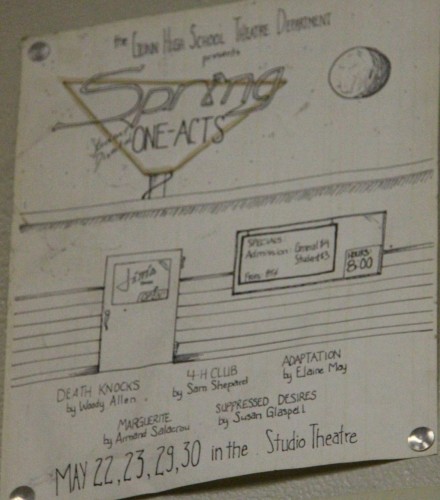 the GUNN HIGH SCHOOL THEATRE DEPARTMENT
presents
Spring
ONE-ACTS
Jim's
OPEN
SPECIALS:
Admission: General $4
Student $3
HOURS:
8:00
DEATH KNOCKS
by Woody Allen
4-H CLUB
by Sam Shepard
ADAPTATION
by Elaine May
MARGUERITE
by Armand Salacrow
SUPPRESSED DESIRES
by Susan Glaspell
MAY 22, 23, 29, 30 in the Studio Theatre